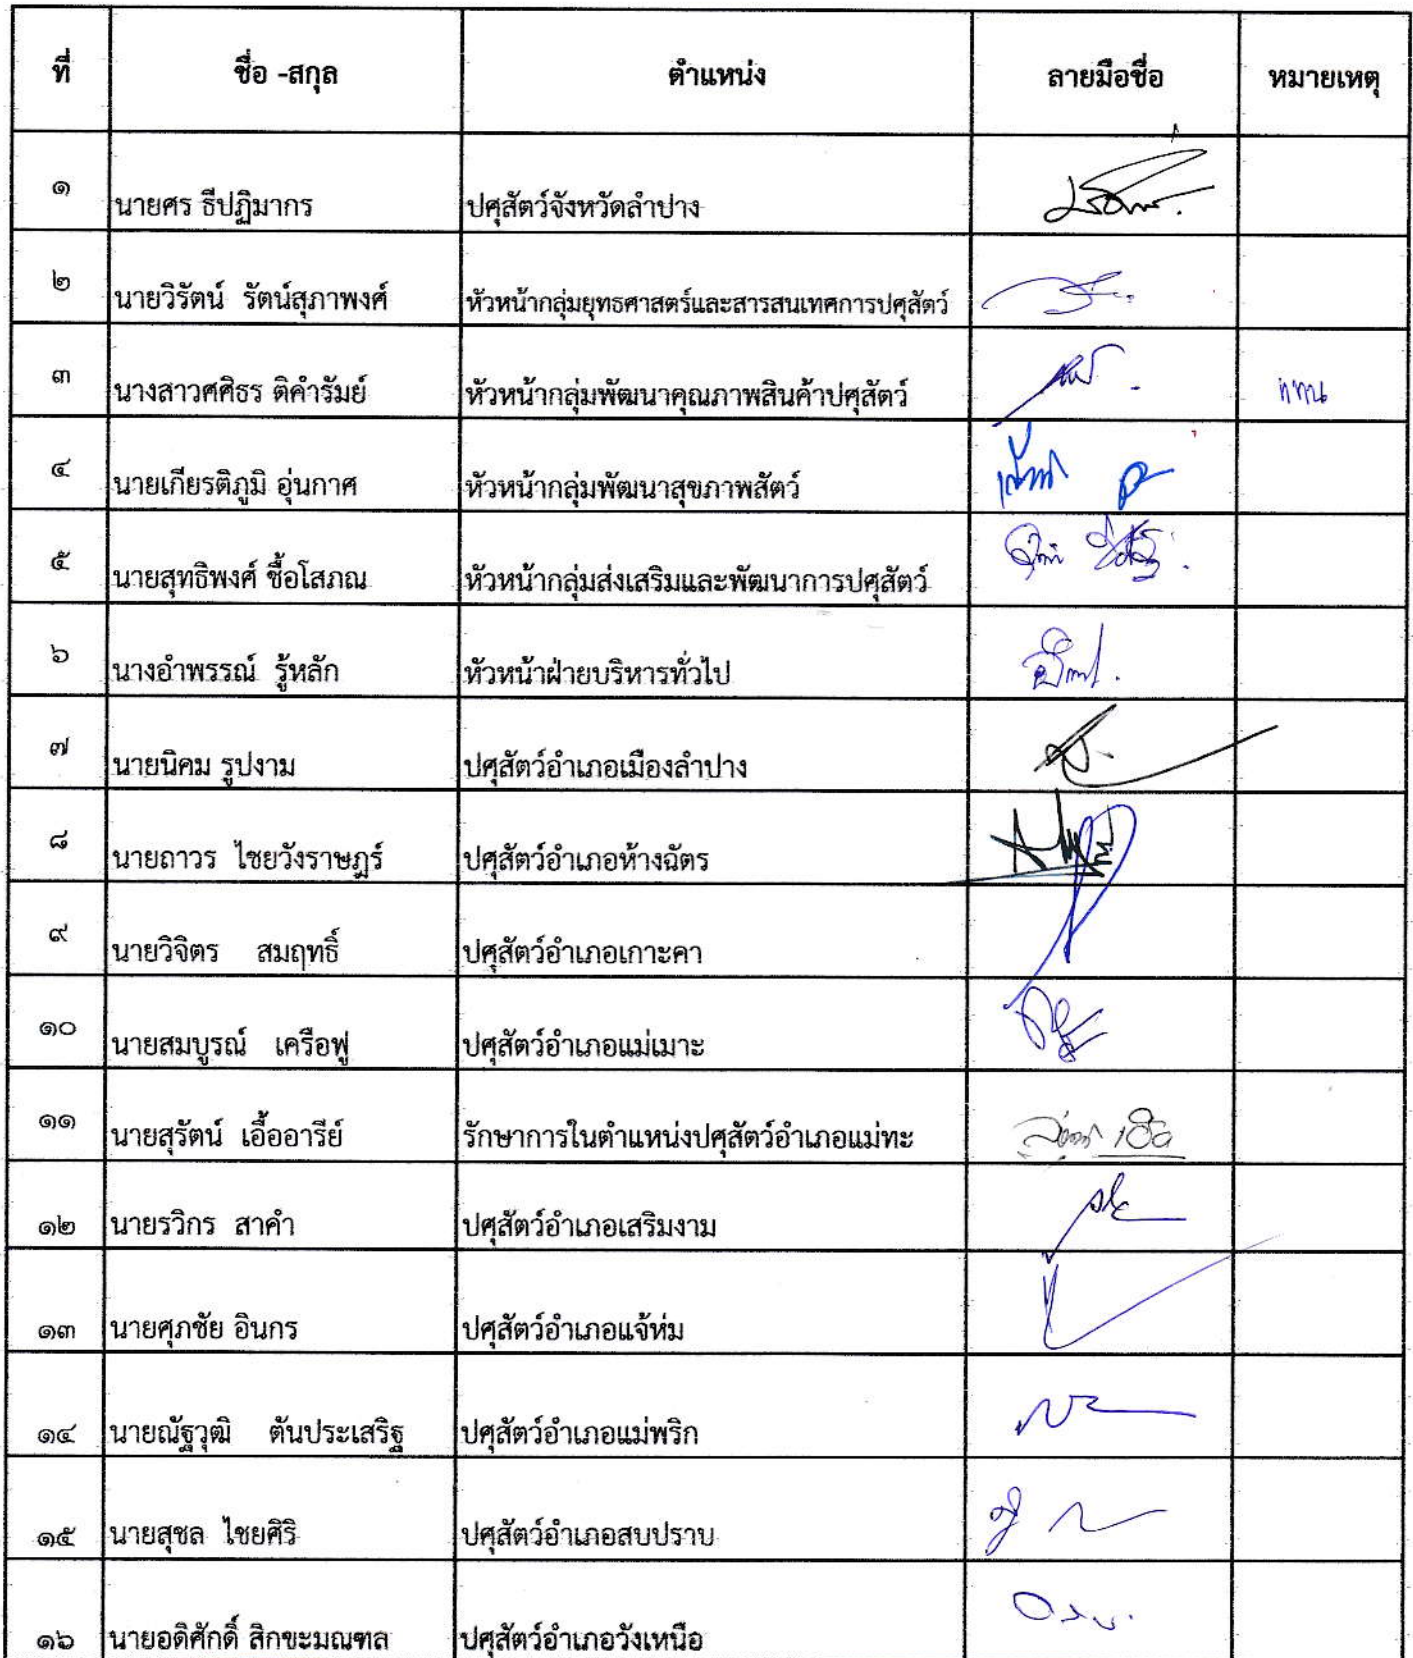 ที่ ชื่อ -สกุล ตำแหน่ง ลายมือชื่อ หมายเหตุ
๑ นายศร ธีปฏิมากร ปศุสัตว์จังหวัดลำปาง
๒ นายวิรัตน์ รัตน์สุภาพงศ์ หัวหน้ากลุ่มยุทธศาสตร์และสารสนเทศการปศุสัตว์
๓ นางสาวศศิธร ติคำรัมย์ หัวหน้ากลุ่มพัฒนาคุณภาพสินค้าปศุสัตว์
๔ นายเกียรติภูมิ อุ่นกาศ หัวหน้ากลุ่มพัฒนาสุขภาพสัตว์
๕ นายสุทธิพงศ์ ชื้อโสภณ หัวหน้ากลุ่มส่งเสริมและพัฒนาการปศุสัตว์
๖ นางอำพรรณ์ รู้หลัก หัวหน้าฝ่ายบริหารทั่วไป
๗ นายนิคม รูปงาม ปศุสัตว์อำเภอเมืองลำปาง
๘ นายถาวร ไชยวังราษฎร์ ปศุสัตว์อำเภอห้างฉัตร
๙ นายวิจิตร สมฤทธิ์ ปศุสัตว์อำเภอเกาะคา
๑๐ นายสมบูรณ์ เครือฟู ปศุสัตว์อำเภอแม่เมาะ
๑๑ นายสุรัตน์ เอื้ออารีย์ รักษาการในตำแหน่งปศุสัตว์อำเภอแม่ทะ
๑๒ นายรวิกร สาคำ ปศุสัตว์อำเภอเสริมงาม
๑๓ นายศุภชัย อินกร ปศุสัตว์อำเภอแจ้ห่ม
๑๔ นายณัฐวุฒิ ตันประเสริฐ ปศุสัตว์อำเภอแม่พริก
๑๕ นายสุชล ไชยศิริ ปศุสัตว์อำเภอสบปราบ
๑๖ นายอดิศักดิ์ สิกขะมณฑล ปศุสัตว์อำเภอวังเหนือ